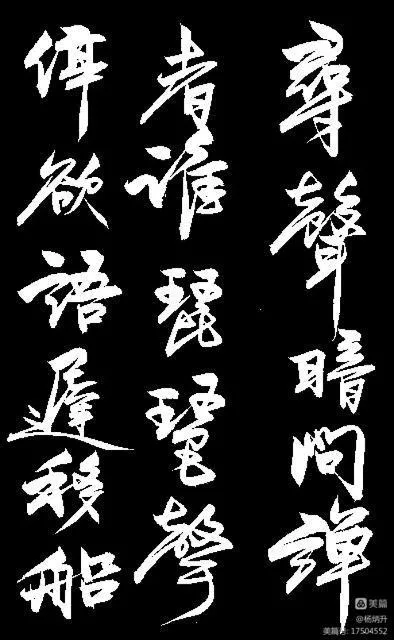 尋聲暗問彈
者誰琵琶聲
停欲語遲移船
美篇
@杨炳升
美篇号: 17504552